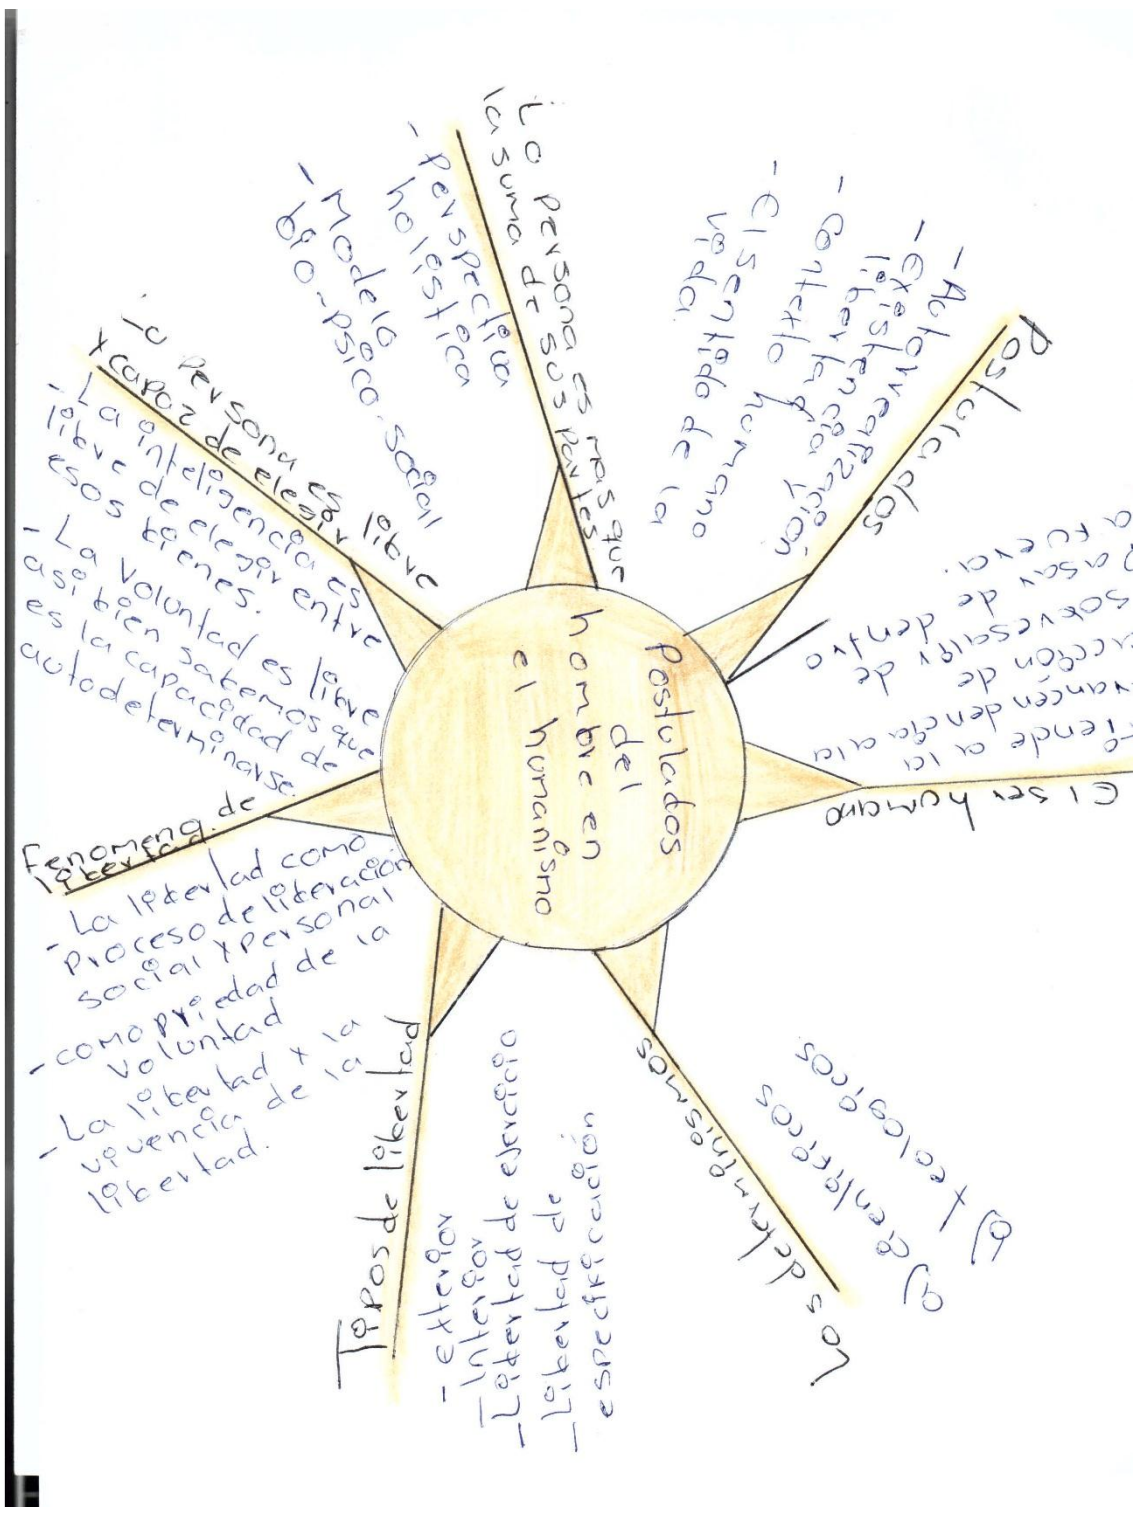 Postulados
del
hombre en
el humanismo
Postulados
- Autorrealización
- Existencia y
libertad
- contexto humano
- El sentido de la
vida.
La persona es mas que
la suma de sus partes.
- Perspectiva
holística
- Modelo
bio-psico-social
La persona es libre
y capaz de elegir
- La inteligencia es
libre de elegir entre
esos bienes.
- La voluntad es libre
asi bien sabemos que
es la capacidad de
autodeterminarse.
Fenomeno de
libertad
- La libertad como
proceso de liberación
social y personal
- como priedad de la
voluntad
- La libertad y la
vivencia de la
libertad.
Tipos de libertad
- exterior
- Interior
- Libertad de ejercicio
- Libertad de
especificación
Los determinismos
a) cientificos
b) teologicos.
El ser humano
a la
de
sobresalir de
Pasar de dentro
a fuera.